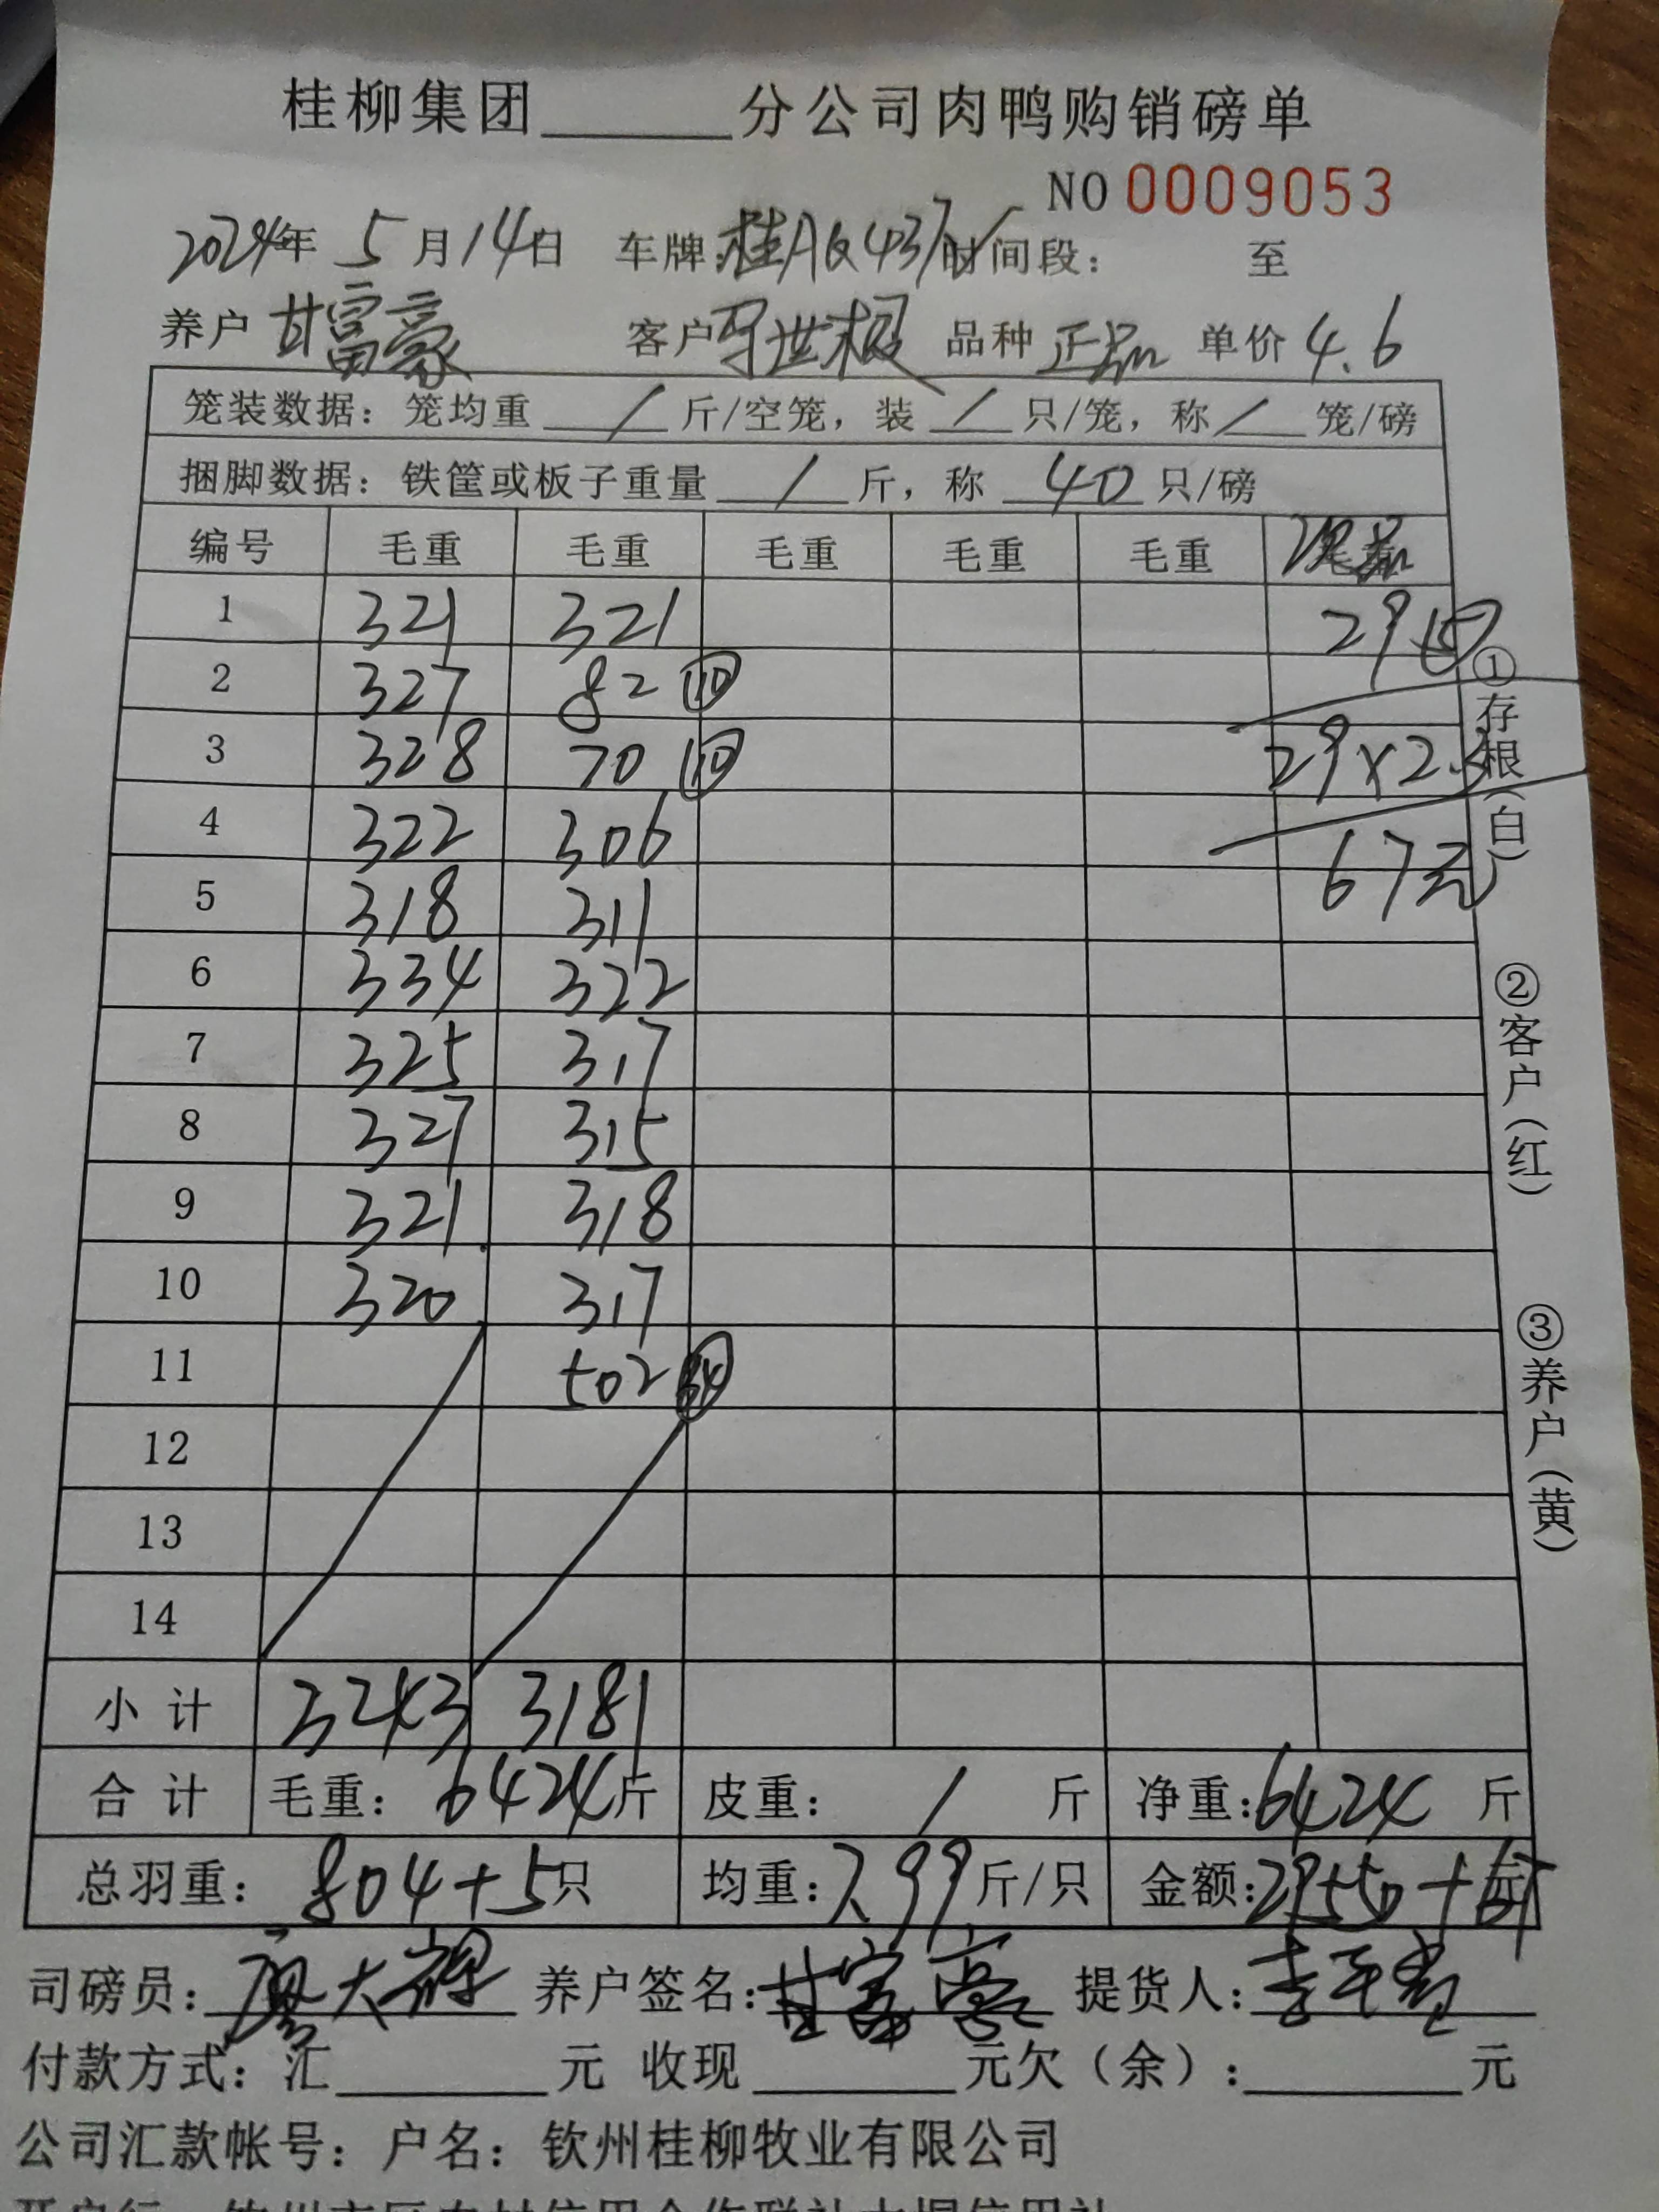 桂柳集团______分公司肉鸭购销磅单
NO 0009053
2024年 5月14日 车牌:桂A 时间段: 至
养户 甘富豪 客户 品种 正品 单价 4.6
笼装数据: 笼均重 / 斤/空笼, 装 / 只/笼, 称 / 笼/磅
捆脚数据: 铁筐或板子重量 / 斤, 称 40 只/磅
编号 毛重 毛重 毛重 毛重 毛重
1 321 321 29 ⑤
2 327 82 ⑩
3 328 70 ⑩ 29×2.3
4 322 306
5 318 311 67元
6 334 322
7 325 317
8 327 315
9 321 318
10 320 317
11 502
12
13
14
小计 3243 3181
合计 毛重: 6424斤 皮重: / 斤 净重: 6424 斤
总羽重: 804+5只 均重: 7.99斤/只 金额: 29550+67元
司磅员: 养户签名: 甘富豪 提货人:
付款方式: 汇______元 收现______元欠(余):______元
公司汇款帐号: 户名: 钦州桂柳牧业有限公司
①存根(白) ②客户(红) ③养户(黄)